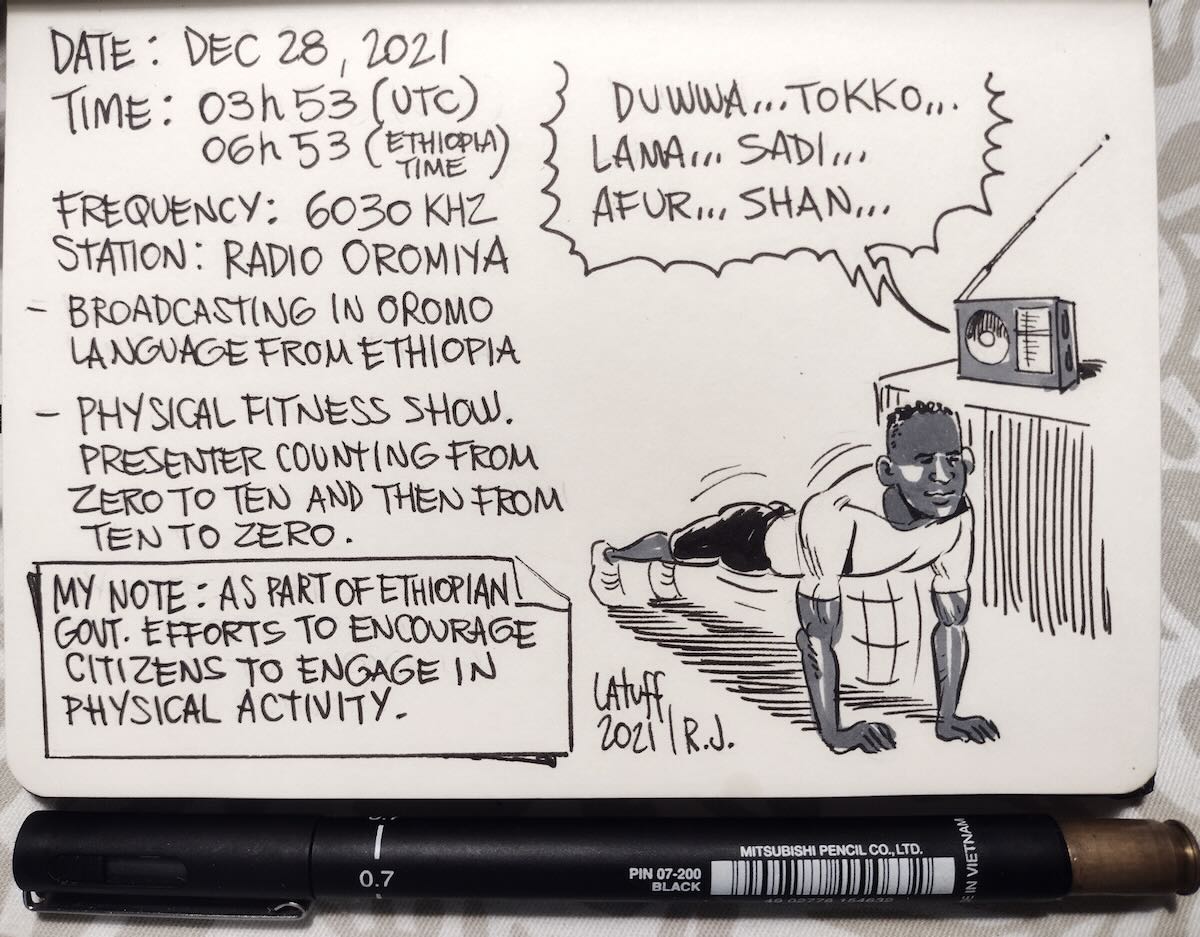 DATE: DEC 28, 2021
TIME: 03h53 (UTC)
06h53 (ETHIOPIA
TIME)
FREQUENCY: 6030 KHZ
STATION: RADIO OROMIYA
- BROADCASTING IN OROMO
LANGUAGE FROM ETHIOPIA
- PHYSICAL FITNESS SHOW.
PRESENTER COUNTING FROM
ZERO TO TEN AND THEN FROM
TEN TO ZERO.
MY NOTE: AS PART OF ETHIOPIAN
GOVT. EFFORTS TO ENCOURAGE
CITIZENS TO ENGAGE IN
PHYSICAL ACTIVITY.
DUWWA... TOKKO...
LAMA... SADI...
AFUR... SHAN...
LATUFF
2021 / R.J.
0.7
PIN 07-200
BLACK
MITSUBISHI PENCIL CO., LTD.
IN VIETNAM